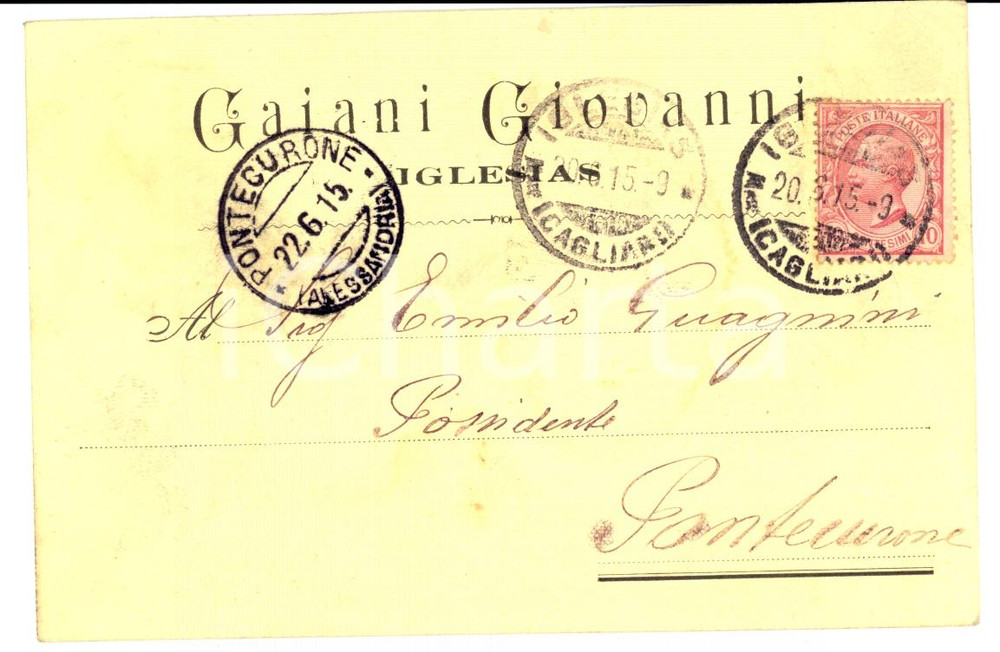 Gaiani Giovanni
IGLESIAS
PONTECURONE
22.6.15.
(ALESSANDRIA)
20.6.15.-9
(CAGLIARI)
20.6.15.-9
(CAGLIARI)
POSTE ITALIANE
Al Sig Emilio Guagnini
Possidente
Pontecurone